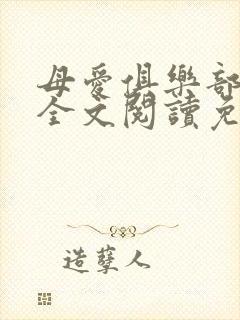 母愛俱樂部
全文閱讀免
造孽人